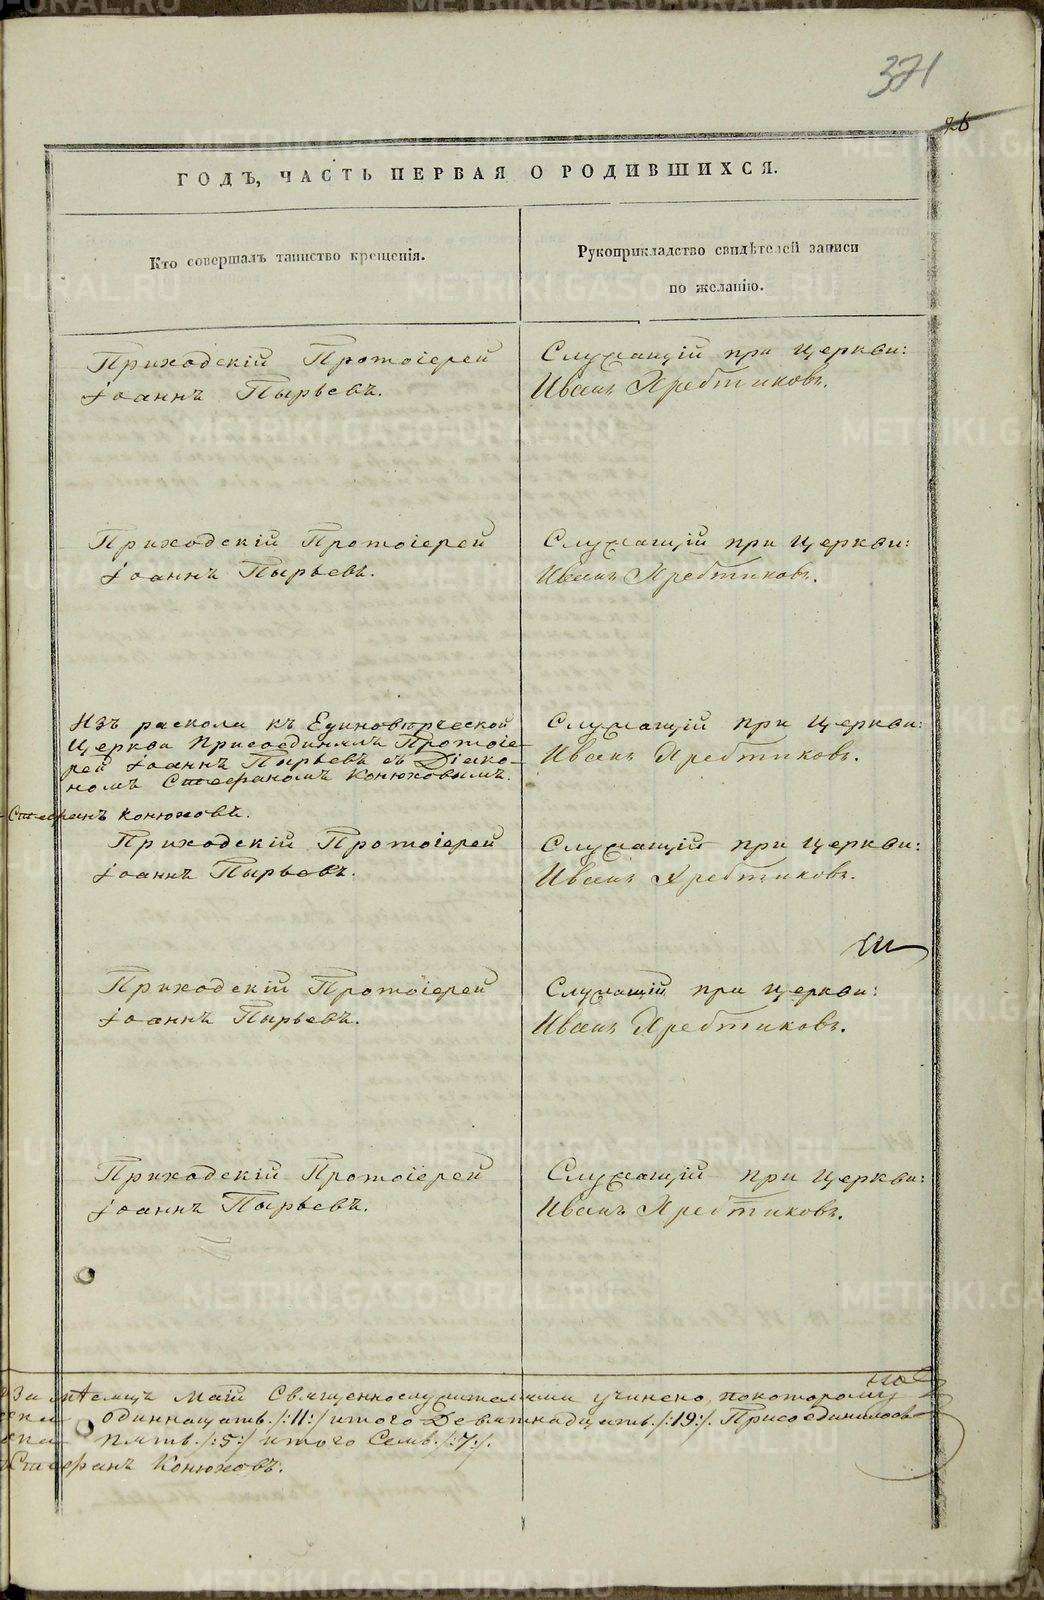 371
26
ГОДЪ, ЧАСТЬ ПЕРВАЯ О РОДИВШИХСЯ.
Кто совершалъ таинство крещенія.
Рукоприкладство свидѣтелей записи
по желанію.
Приходскій Протоіерей
Іоаннъ Пырьевъ.
Служащій при Церкви:
Иванъ Хребтиковъ.
Приходскій Протоіерей
Іоаннъ Пырьевъ.
Служащій при Церкви:
Иванъ Хребтиковъ.
Изъ раскола къ Единовѣрческой
Церкви Присоединялъ Протоіе-
рей Іоаннъ Пырьевъ съ Діако-
номъ Стефаномъ Конюховымъ.
Служащій при Церкви:
Иванъ Хребтиковъ.
Стефанъ Конюховъ.
Приходскій Протоіерей
Іоаннъ Пырьевъ.
Служащій при Церкви:
Иванъ Хребтиковъ.
Приходскій Протоіерей
Іоаннъ Пырьевъ.
Служащій при Церкви:
Иванъ Хребтиковъ.
Приходскій Протоіерей
Іоаннъ Пырьевъ.
Служащій при Церкви:
Иванъ Хребтиковъ.
мѣсяцъ Маій Священнослужителями учинено, по которому
одиннацать /:11:/ итого Девятнадцать /:19:/. Присоединилось
пять /:5:/ итого Семь /:7:/.
Стефанъ Конюховъ.
METRIKI.GASO-URAL.RU